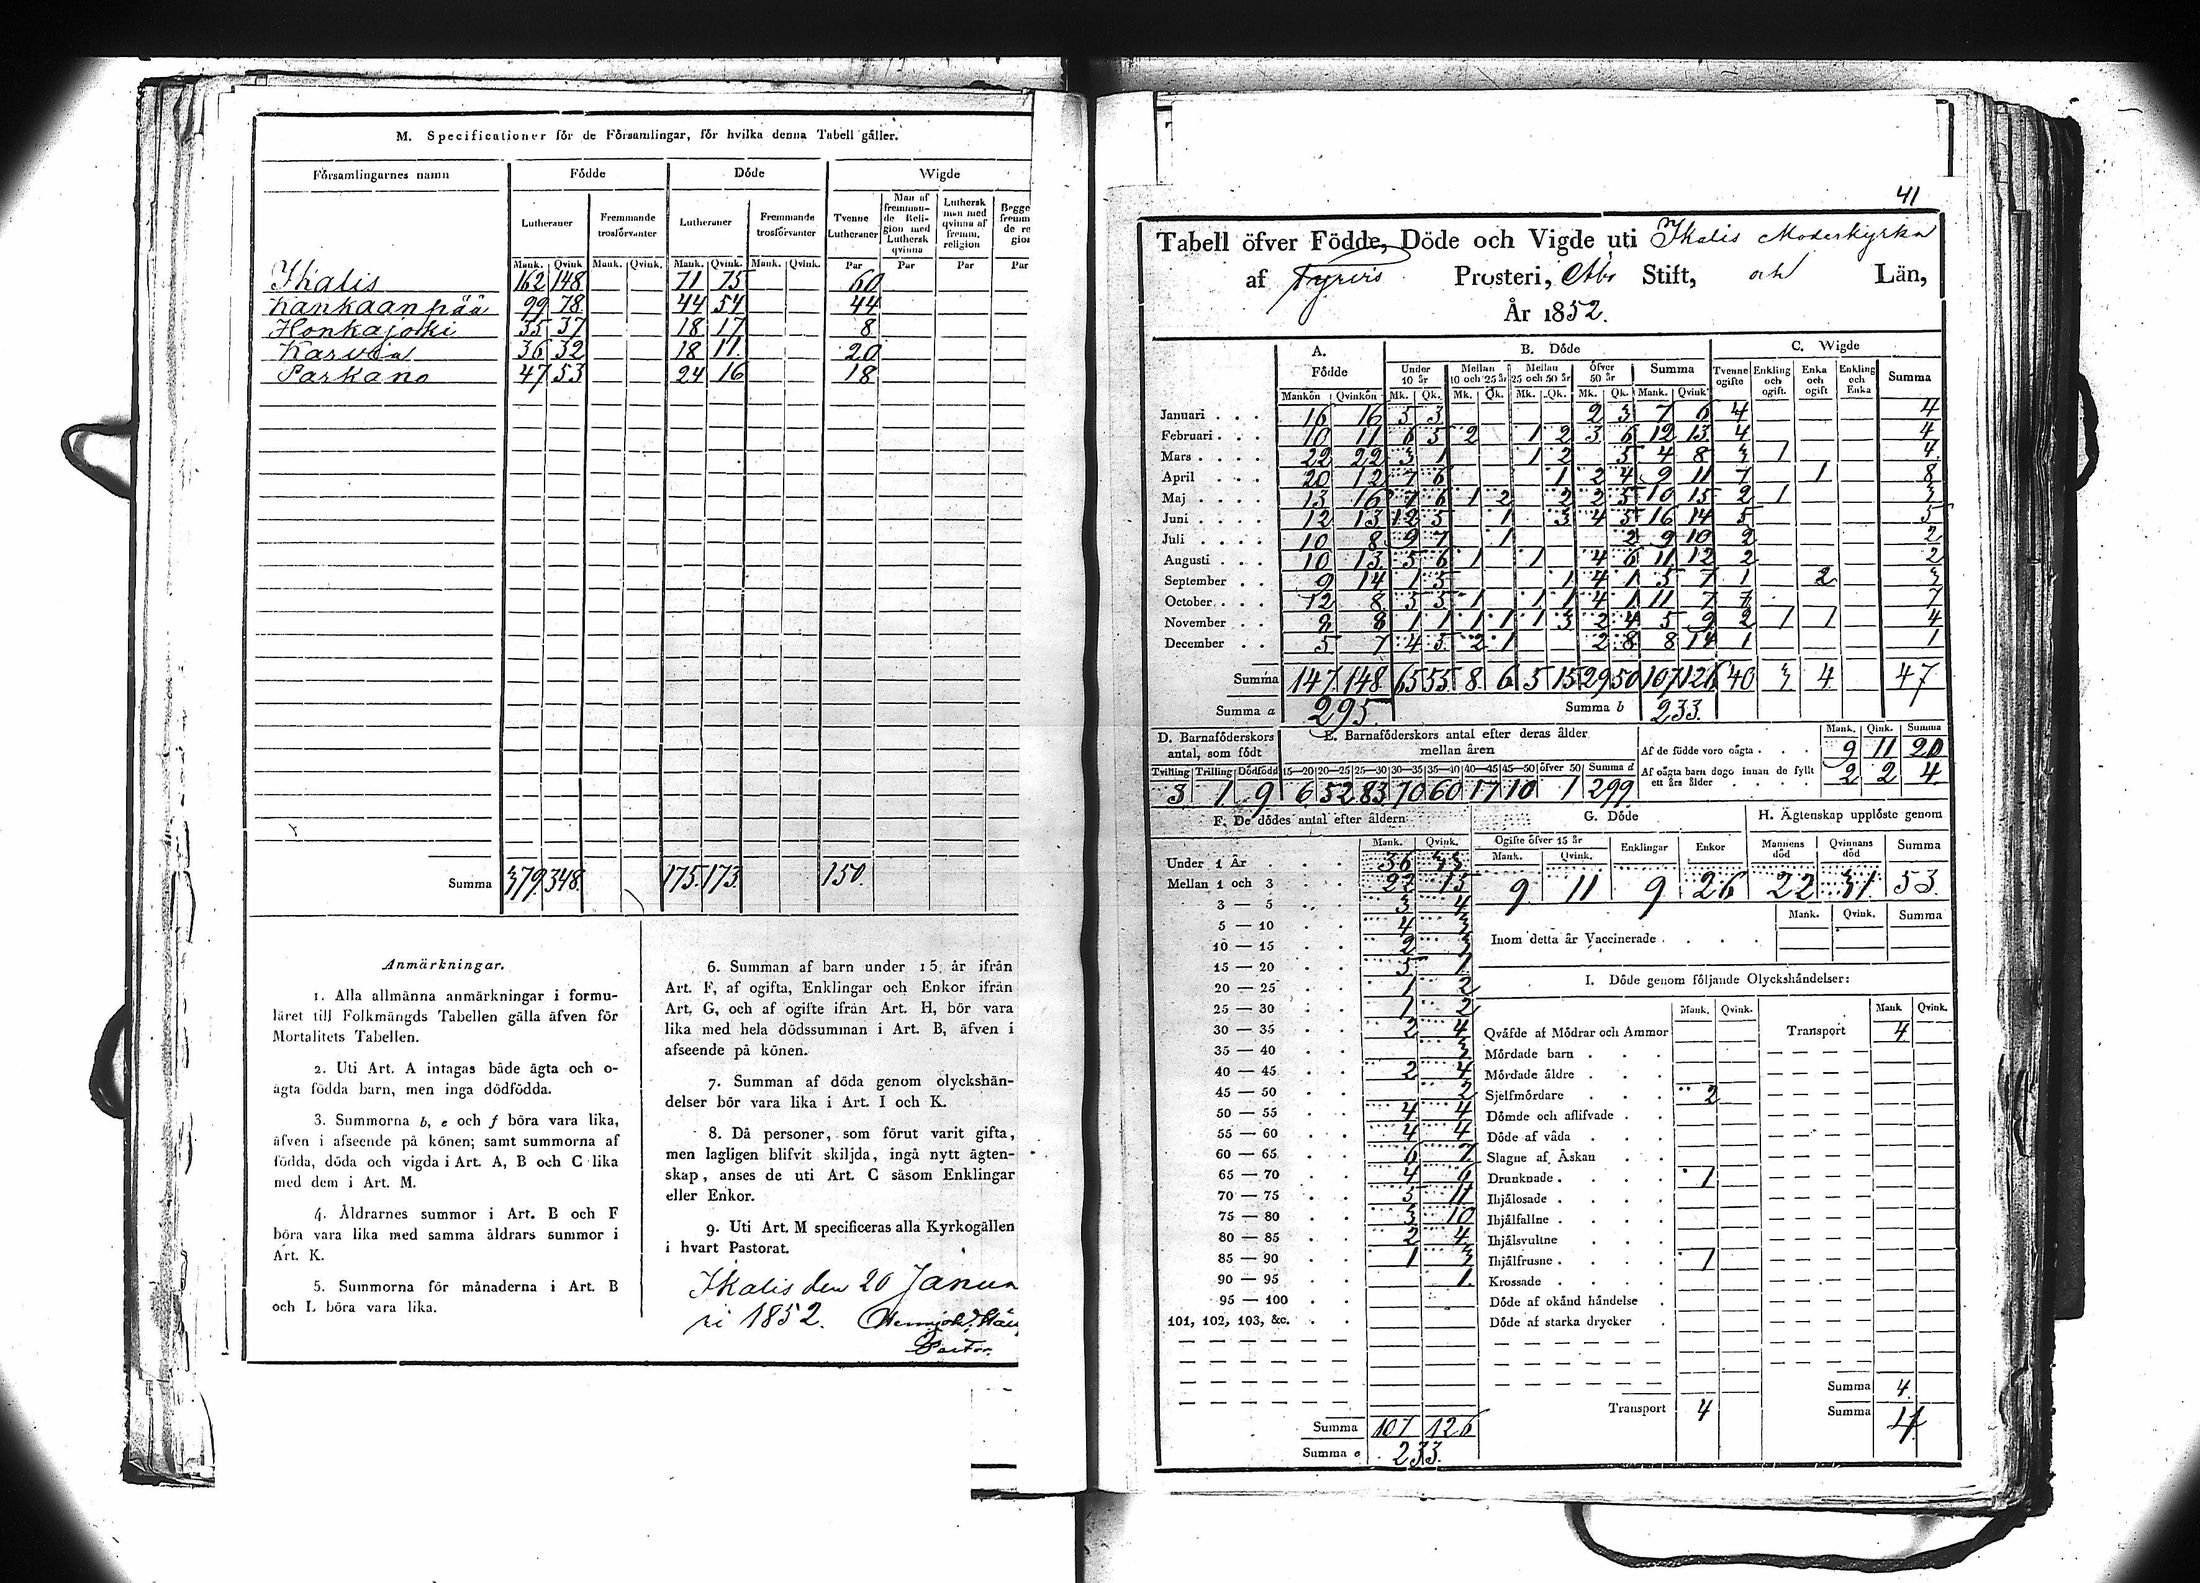 M. Specificationer för de Församlingar, för hvilka denna Tabell gäller.
Församlingarnes namn Födde Döde Wigde
Lutheraner Fremmande trosförvanter Lutheraner Fremmande trosförvanter Tvenne Lutheraner Man af fremman-de Reli-gion med Luthersk qvinna Luthersk man med qvinna af fremm. religion
Mank. Qvink. Mank. Qvink. Mank. Qvink. Mank. Qvink. Par Par Par Par
Ikalis 162 148 71 75 60
Kankaanpää 99 78 44 54 44
Honkajoki 35 37 18 17 8
Karvia 36 32 18 11 20
Parkano 47 53 24 16 18
Summa 379 348. 175. 173. 150.
Anmärkningar.
1. Alla allmänna anmärkningar i formu-
läret till Folkmängds Tabellen gälla äfven för
Mortalitets Tabellen.
2. Uti Art. A intagas både ägta och o-
ägta födda barn, men inga dödfödda.
3. Summorna b, e och f böra vara lika,
äfven i afseende på könen; samt summorna af
födda, döda och vigda i Art. A, B och C lika
med dem i Art. M.
4. Åldrarnes summor i Art. B och F
böra vara lika med samma åldrars summor i
Art. K.
5. Summorna för månaderna i Art. B
och L böra vara lika.
6. Summan af barn under 15 år ifrån
Art. F, af ogifta, Enklingar och Enkor ifrån
Art. G, och af ogifte ifrån Art. H, bör vara
lika med hela dödssumman i Art. B, äfven i
afseende på könen.
7. Summan af döda genom olyckshän-
delser bör vara lika i Art. I och K.
8. Då personer, som förut varit gifta,
men lagligen blifvit skiljda, ingå nytt ägten-
skap, anses de uti Art. C såsom Enklingar
eller Enkor.
9. Uti Art. M specificeras alla Kyrkogällen
i hvart Pastorat.
Ikalis den 20 Janua
ri 1852.
Pastor.
41
Tabell öfver Födde, Döde och Vigde uti Ikalis Moderkyrka
af Tyrvis Prosteri, Åbo Stift, och Län,
År 1852.
A. Födde B. Döde C. Wigde
Under 10 år Mellan 10 och 25 år Mellan 25 och 50 år Öfver 50 år Summa Tvenne ogifte Enkling och ogift. Enka och ogift Enkling och Enka Summa
Mankön Qvinkön Mk. Qk. Mk. Qk. Mk. Qk. Mk. Qk. Mank. Qvink
Januari 16 16 5 3 2 3 7 6 4 4
Februari 10 11 6 5 2 1 2 3 6 12 13 4 4
Mars 22 22 3 1 1 2 5 4 8 3 1 4
April 20 12 7 6 1 2 4 9 11 7 1 8
Maj 13 16 7 6 1 2 2 2 5 10 15 2 1 3
Juni 12 13 12 5 1 3 4 5 16 14 5 5
Juli 10 8 9 7 1 2 9 10 2 2
Augusti 10 13 5 6 1 1 4 6 11 12 2 2
September 9 14 1 5 1 4 1 5 7 1 2 3
October 12 8 5 5 1 1 1 4 1 11 7 7 7
November 8 8 1 1 1 1 1 3 2 4 5 9 2 1 1 4
December 5 7 4 5 2 1 2 8 8 14 1 1
Summa 147 148 65 55 8 6 5 15 29 50 107 126 40 3 4 47
Summa a 295. Summa b 233.
D. Barnaföderskors antal, som födt
E. Barnaföderskors antal efter deras ålder mellan åren
Mank. Qink. Summa
Af de födde voro oägta 9 11 20
Af oägta barn dogo innan de fyllt ett års ålder 2 2 4
Tvilling Trilling Dödfödd 15—20 20—25 25—30 30—35 35—40 40—45 45—50 öfver 50 Summa d
3 1 9 6 52 83 70 60 17 10 1 299
F. De dödes antal efter åldern
Mank. Qvink.
Under 1 År 36 33
Mellan 1 och 3 22 15
3 — 5 3 4
5 — 10 4 3
10 — 15 2 3
15 — 20 5 1
20 — 25 1 2
25 — 30 1 2
30 — 35 2 4
35 — 40 3
40 — 45 2 4
45 — 50 2
50 — 55 4 4
55 — 60 4 4
60 — 65 6 7
65 — 70 4 6
70 — 75 5 11
75 — 80 3 10
80 — 85 2 4
85 — 90 1 3
90 — 95 1
95 — 100
101, 102, 103, &c.
Summa 107 126
Summa e 233.
G. Döde H. Ägtenskap upplöste genom
Ogifte öfver 15 år Enklingar Enkor Mannens död Qvinnans död Summa
Mank. Qvink.
9 11 9 26 22 31 53
Mank. Qvink. Summa
Inom detta år Vaccinerade
I. Döde genom följande Olyckshändelser:
Mank. Qvink. Mank Qvink.
Qväfde af Mödrar och Ammor Transport 4
Mördade barn
Mördade äldre
Sjelfmördare 2
Dömde och aflifvade
Döde af våda
Slagne af Åskan
Drunknade 1
Ihjälosade
Ihjälfallne
Ihjälsvultne
Ihjälfrusne 1
Krossade
Döde af okänd händelse
Döde af starka drycker
Summa 4
Transport 4 Summa 4